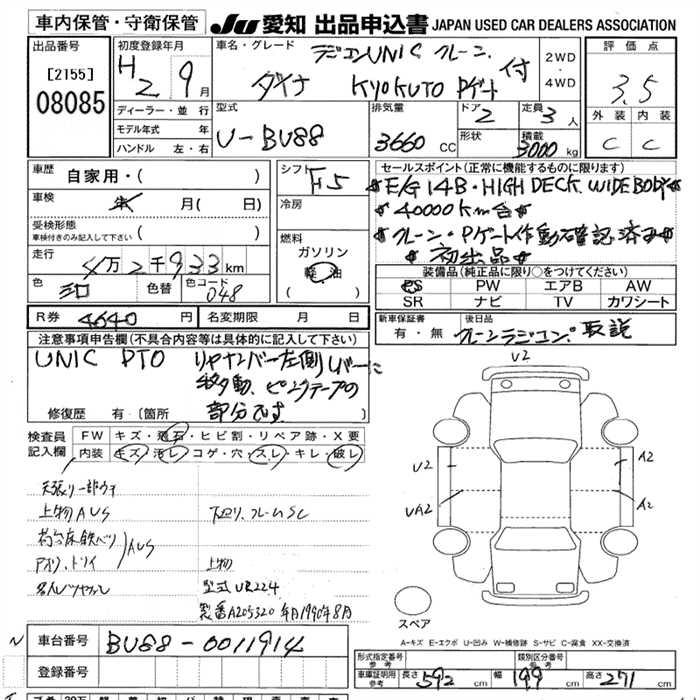 車内保管・守衛保管
JU 愛知 出品申込書 JAPAN USED CAR DEALERS ASSOCIATION
出品番号
[2155]
08085
初度登録年月
H2 9月
ディーラー・並行
モデル年式 年
ハンドル 左・右
車名・グレード
ラジコンUNIC クレーン
ダイナ KYOKUTO Pゲート付
2WD
4WD
型式
U-BU88
排気量
3660 CC
ドア
2
形状
定員
3人
積載
3000kg
評価点
3.5
外装 内装
C C
車歴
自家用・( )
車検
年 月( 日)
受検形態
車検付きのみ記入して下さい ( )
走行
4万2千933km
色
色替
色コード
048
シフト
F5
冷房
燃料
ガソリン
軽油
( )
セールスポイント(正常に機能するものに限ります)
E/G 14B・HIGH DECK. WIDE BODY
40000km台
クレーン・Pゲート作動確認済み
初出品
装備品(純正品に限り○をつけてください)
PS PW エアB AW
SR ナビ TV カワシート
R券 4640円
名変期限 月 日
新車保証書
有・無
後日品
クレーンラジコン 取説
注意事項申告欄(不具合内容等は具体的に記入して下さい)
UNIC PTO リヤナンバー左側Uバーに
移動、ピンクテープの
部分です
修復歴 有(箇所
検査員
記入欄
FW キズ・飛石・ヒビ割・リペア跡・X要
内装 キズ・汚レ・コゲ・穴・スレ・キレ・破レ
天張り一部ウキ
上物AUS
下廻り、フレームSC
AUS
上物
型式 UR224
製番A205320 年月1990年8月
V2
U2
UA2
A2
A2
スペア
A-キズ E-エクボ U-凹み W-補修跡 S-サビ C-腐食 XX-交換済
車台番号
BU88-0011914
登録番号
形式指定番号
参考
類別区分番号
参考
車庫証明用
参考
長さ 592 cm 幅 199 cm 高さ 271 cm